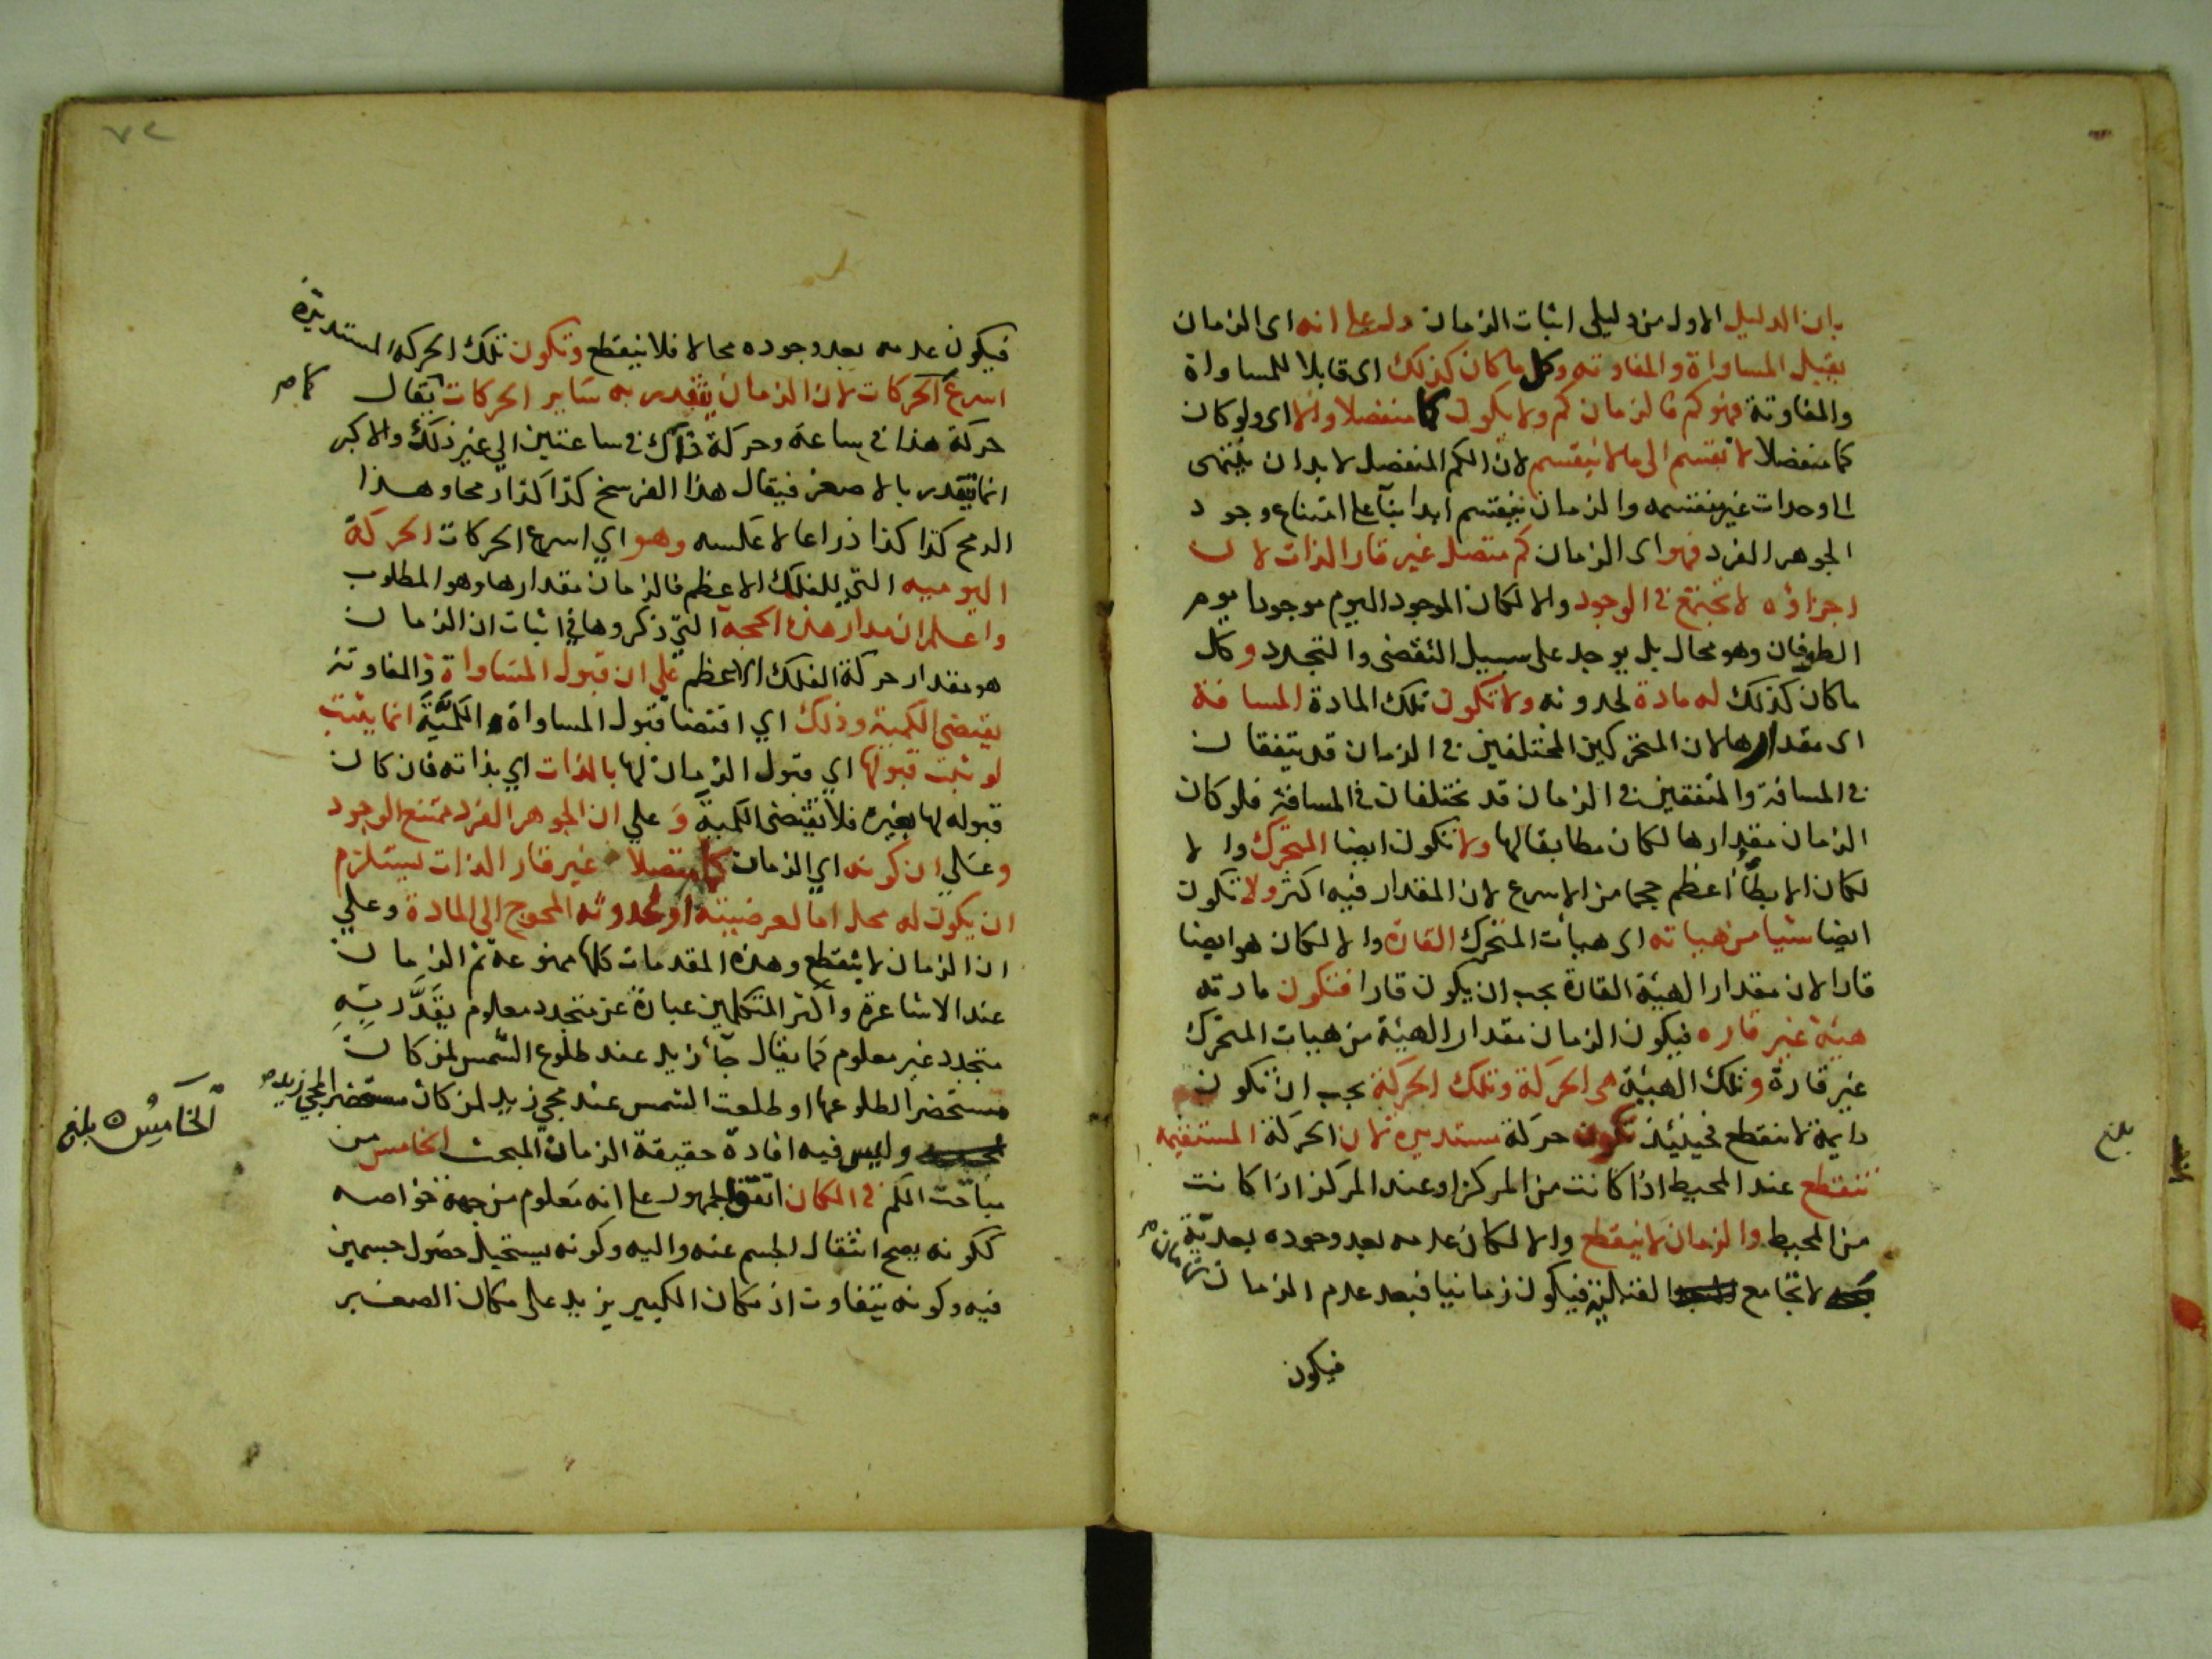 بان الدليل الاول من دليلى اثبات الزمان دل على انه اى الزمان
يقبل المساواة والمفاوته وكل ما كان كذلك اى قابلا للمساواة
والمفاوتة فهو كم فالزمان كم ولا يكون كما منفصلا والا اى ولو كان
كما منفصلا لانقسم الى ما لا ينقسم لان الكم المنفصل لا بد ان ينتهى
الى وحدات غير منقسمه والزمان ينقسم ابدا بنآ على امتناع وجود
الجوهر الفرد فهو اى الزمان كم متصل غير قار الذات لان
اجزاؤه لا تجتمع فى الوجود والا لكان الموجود اليوم موجودا يوم
الطوفان وهو محال بل يوجد على سبيل التقضى والتجدد وكل
ما كان كذلك له مادة لحدوثه ولا تكون تلك المادة المسافة
اى مقدارها لان المتحركين المختلفين فى الزمان قد يتفقان
فى المسافة والمتفقين فى الزمان قد يختلفان فى المسافة فلو كان
الزمان مقدارها لكان مطابقا لها ولا تكون ايضا المتحرك والا
لكان الابطأ اعظم حجما من الاسرع لان المقدار فيه اكثر ولا تكون
ايضا شيا من هياته اى هيأت المتحرك القارة والا لكان هو ايضا
قارا لان مقدار الهيئة القارة يجب ان يكون قارا فتكون مادته
هيئة غير قاره فيكون الزمان مقدار الهيئة من هيات المتحرك
غير قارة وتلك الهيئة هى الحركة وتلك الحركة يجب ان تكون
دايمة لا تنقطع فحينئذ تكون حركة مستديرة لان الحركة المستقيمه
تنقطع عند المحيط اذا كانت من المركز او عند المركز اذا كانت
من المحيط والزمان لا ينقطع والا لكان عدمه بعد وجوده بعدية
لا تجامع القبلية فيكون زمانيا فبعد عدم الزمان زمان
فيكون
بلغ
٧٢
فيكون عدمه بعد وجوده محالا فلا ينقطع وتكون تلك الحركة المستديرة
اسرع الحركات لان الزمان يتقدر به ساير الحركات يقال كما مر
حركة هذا فى ساعة وحركة ذاك فى ساعتين الي غير ذلك والاكبر
انما يتقدر بالاصغر فيقال هذا الفرسخ كذا كذا رمحا وهذا
الرمح كذا كذا ذراعا لا عكسه وهو اي اسرع الحركات الحركة
اليوميه التي للفلك الاعظم فالزمان مقدارها وهو المطلوب
واعلم ان مدار هذه الحجة التي ذكروها في اثبات ان الزمان
هو مقدار حركة الفلك الاعظم علي ان قبول المساواة والمفاوتة
يقتضى الكمية وذلك اي اقتضا قبول المساواة الكميَّةَ انما يثبت
لو ثبت قبولها اي قبول الزمان لها بالذات اي بذاته فان كان
قبوله لها بغيره فلا يقتضى الكمية وَعلي ان الجوهر الفرد ممتنع الوجود
وعلي ان كونه اي الزمان كما متصلا غير قار الذات يستلزم
ان يكون له محل اما لعرضيته او لحدوثه المحوج الى المادة وعلي
ان الزمان لا ينقطع وهذه المقدمات كلها ممنوعة ثم الزمان
عند الاشاعرة واكثر المتكلمين عبارة عن متجدد معلوم يقَدَّر بِهِ
متجدد غير معلوم كما يقال جآ زيد عند طلوع الشمس لمن كان
مستحضرا لطلوعها او طلعت الشمس عند مجي زيد لمن كان مستحضرا لمجي زيد
وليس فيه افادة حقيقة الزمان المبحث الخامس من
مباحث الكم فى المكان اتفق الجمهور على انه معلوم من جهة خواصه
ككونه يصح انتقال الجسم عنه واليه وكونه يستحيل حصول جسمين
فيه وكونه يتفاوت اذ مكان الكبير يزيد على مكان الصغير
الخَامِسُ ه بلغ